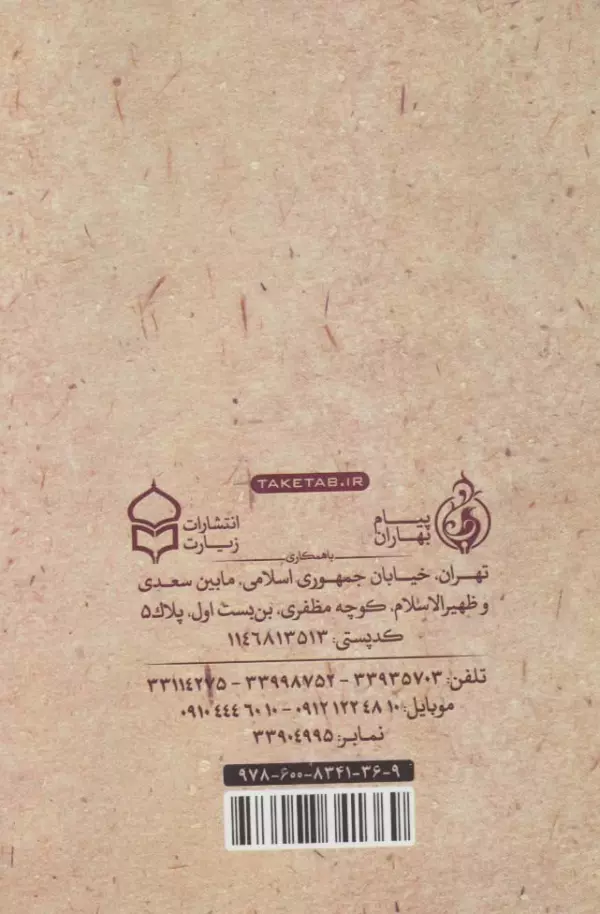 TAKETAB.IR
پیام
بهاران
انتشارات
زیارت
باهمکاری
تهران، خیابان جمهوری اسلامی، مابین سعدی
و ظهیرالاسلام، کوچه مظفری، بن‌بست اول، پلاک ۵
کدپستی: ۱۱۴۶۸۱۳۵۱۳
تلفن: ۳۳۹۳۵۷۰۳ - ۳۳۹۹۸۷۵۲ - ۳۳۱۱۴۲۷۵
موبایل: ۰۹۱۲ ۱۲۲ ۴۸ ۱۰ - ۰۹۱۰ ۴۴۴ ۶۰ ۱۰
نمابر: ۳۳۹۰۴۹۹۵
۹۷۸-۶۰۰-۸۳۴۱-۳۶-۹